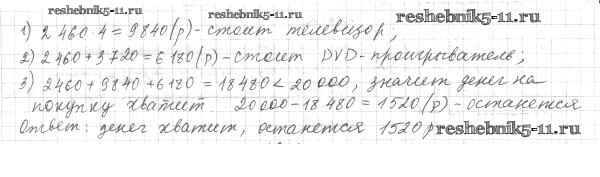 reshebnik5-11.ru
reshebnik5-11.ru
1) 2 460 · 4 = 9840 (р) - стоит телевизор;
2) 2 460 + 3720 = 6 180 (р) - стоит DVD - проигрыватель;
3) 2460 + 9840 + 6180 = 18 480 < 20 000, значит денег на
покупку хватит. 20 000 - 18 480 = 1520 (р) - останется
Ответ: денег хватит, останется 1520 р
reshebnik5-11.ru
reshebnik5-11.ru